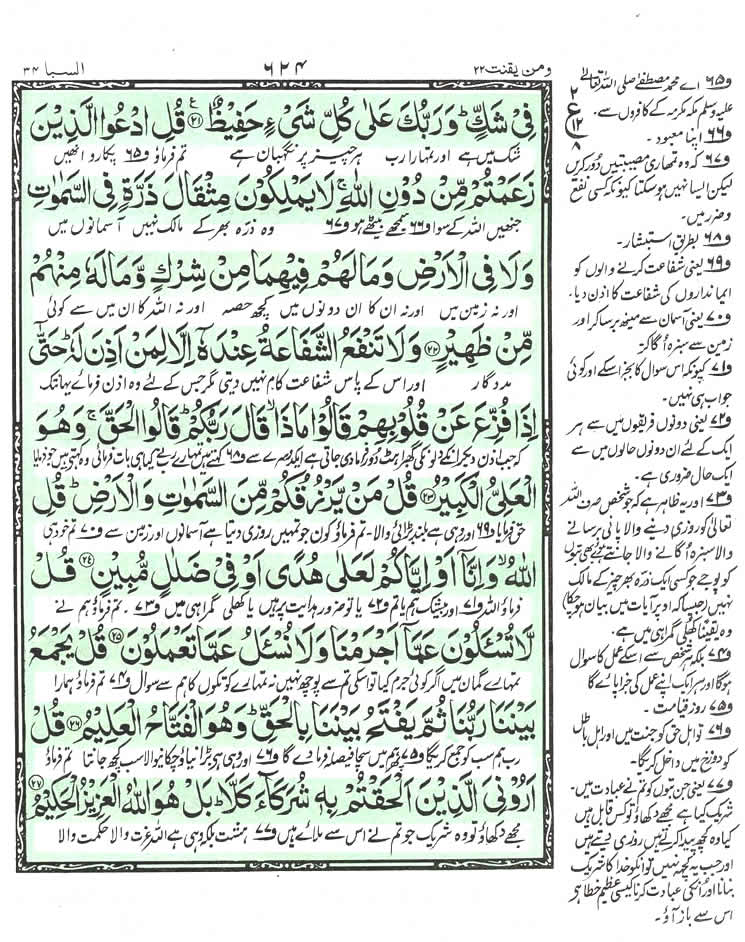 ومن یقنت ۲۲
۶۲۴
السبا ۳۴
فِیْ شَكٍّ ؕ وَ رَبُّكَ عَلٰی كُلِّ شَیْءٍ حَفِیْظٌ ﴿۲۱﴾ قُلِ ادْعُوا الَّذِیْنَ
شک میں ہے اور تمہارا رب ہر چیز پر نگہبان ہے تم فرماؤ ف۶۵ پکارو انھیں
زَعَمْتُمْ مِّنْ دُوْنِ اللّٰهِ ۚ لَا یَمْلِكُوْنَ مِثْقَالَ ذَرَّةٍ فِی السَّمٰوٰتِ
جنھیں اللہ کے سوا ف۶۶ سمجھے بیٹھے ہو ف۶۷ وہ ذرہ بھر کے مالک نہیں آسمانوں میں
وَ لَا فِی الْاَرْضِ وَ مَا لَهُمْ فِیْهِمَا مِنْ شِرْكٍ وَّ مَا لَهٗ مِنْهُمْ
اور نہ زمین میں اور نہ ان کا ان دونوں میں کچھ حصہ اور نہ اللہ کا ان میں سے کوئی
مِّنْ ظَهِیْرٍ ﴿۲۲﴾ وَ لَا تَنْفَعُ الشَّفَاعَةُ عِنْدَهٗۤ اِلَّا لِمَنْ اَذِنَ لَهٗ ؕ حَتّٰۤی
مددگار اور اس کے پاس شفاعت کام نہیں دیتی مگر جس کے لئے وہ اذن فرمائے یہانتک
اِذَا فُزِّعَ عَنْ قُلُوْبِهِمْ قَالُوْا مَا ذَا ۙ قَالَ رَبُّكُمْ ؕ قَالُوا الْحَقَّ ۚ وَ هُوَ
کہ جب اذن دیکر انکے دلوں کی گھبراہٹ دور فرمادی جاتی ہے ایک دوسرے سے ف۶۸ کہتے ہیں تمہارے رب نے کیا ہی بات فرمائی وہ کہتے ہیں جو فرمایا
الْعَلِیُّ الْكَبِیْرُ ﴿۲۳﴾ قُلْ مَنْ یَّرْزُقُكُمْ مِّنَ السَّمٰوٰتِ وَ الْاَرْضِ ؕ قُلِ
حق فرمایا ف۶۹ اور وہی ہے بلند بڑائی والا۔ تم فرماؤ کون جو تمہیں روزی دیتا ہے آسمانوں اور زمین سے ف۷۰ تم خود ہی
اللّٰهُ ۙ وَ اِنَّاۤ اَوْ اِیَّاكُمْ لَعَلٰی هُدًی اَوْ فِیْ ضَلٰلٍ مُّبِیْنٍ ﴿۲۴﴾ قُلْ
فرماؤ اللہ ف۷۱ اور بیشک ہم یا تم ف۷۲ یا تو ضرور ہدایت پر ہیں یا کھلی گمراہی میں ف۷۳۔ تم فرماؤ ہم نے
لَّا تُسْـَٔلُوْنَ عَمَّاۤ اَجْرَمْنَا وَ لَا نُسْـَٔلُ عَمَّا تَعْمَلُوْنَ ﴿۲۵﴾ قُلْ یَجْمَعُ
تمہارے گمان میں اگر کوئی جرم کیا تو اسکی تم سے پوچھ نہیں نہ تمہارے کوتکوں کا ہم سے سوال ف۷۴ تم فرماؤ ہمارا
بَیْنَنَا رَبُّنَا ثُمَّ یَفْتَحُ بَیْنَنَا بِالْحَقِّ ؕ وَ هُوَ الْفَتَّاحُ الْعَلِیْمُ ﴿۲۶﴾ قُلْ
رب ہم سب کو جمع کریگا ف۷۵ پھر ہم میں سچا فیصلہ فرمادے گا ف۷۶ اور وہی ہے بڑا نیاؤ چکانیوالا سب کچھ جانتا تم فرماؤ
اَرُوْنِیَ الَّذِیْنَ اَلْحَقْتُمْ بِهٖ شُرَكَآءَ كَلَّا ؕ بَلْ هُوَ اللّٰهُ الْعَزِیْزُ الْحَكِیْمُ ﴿۲۷﴾
مجھے دکھاؤ تو وہ شریک جو تم نے اس سے ملائے ہیں ف۷۷ ہشت بلکہ وہی ہے اللہ عزت والا حکمت والا
ف۶۵ اے محمد مصطفےٰ صلی اللہ تعالیٰ
علیہ وسلم مکہ مکرمہ کے کافروں سے۔
ف۶۶ اپنا معبود۔
ف۶۷ کہ وہ تمہاری مصیبتیں دور کریں
لیکن ایسا نہیں ہو سکتا کیونکہ کسی نفع
و ضرر میں۔
ف۶۸ بطریق استبشار۔
ف۶۹ یعنی شفاعت کرنے والوں کو
ایمانداروں کی شفاعت کا اذن دیا۔
ف۷۰ یعنی آسمان سے مینھ برسا کر اور
زمین سے سبزہ اُگا کر۔
ف۷۱ کیونکہ اس سوال کا بجز اسکے اور کوئی
جواب ہی نہیں۔
ف۷۲ یعنی دونوں فریقوں میں سے ہر
ایک کے لئے ان دونوں حالوں میں سے
ایک حال ضروری ہے۔
ف۷۳ اور یہ ظاہر ہے کہ جو شخص صرف اللہ
تعالیٰ کو روزی دینے والا پانی برسانے
والا سبزہ اُگانے والا جانتے ہوئے بھی بتوں
کو پوجے جو کسی ایک ذرہ بھر چیز کے مالک
نہیں (جیسا کہ اوپر آیات میں بیان ہو چکا)
وہ یقینا کھلی گمراہی میں ہے۔
ف۷۴ بلکہ ہر شخص سے اسکے عمل کا سوال
ہوگا اور ہر ایک اپنے عمل کی جزا پائے گا
ف۷۵ روز قیامت۔
ف۷۶ تو اہل حق کو جنت میں اور اہل باطل
کو دوزخ میں داخل کریگا۔
ف۷۷ یعنی جن بتوں کو تم نے عبادت میں
شریک کیا ہے مجھے دکھاؤ تو کس قابل ہیں
کیا وہ کچھ پیدا کرتے ہیں روزی دیتے ہیں
اور جب یہ کچھ نہیں تو انکو خدا کا شریک
بنانا اور انکی عبادت کرنا کیسی عظیم خطا ہے
اس سے باز آؤ۔
۲
ع
۱۲
۸